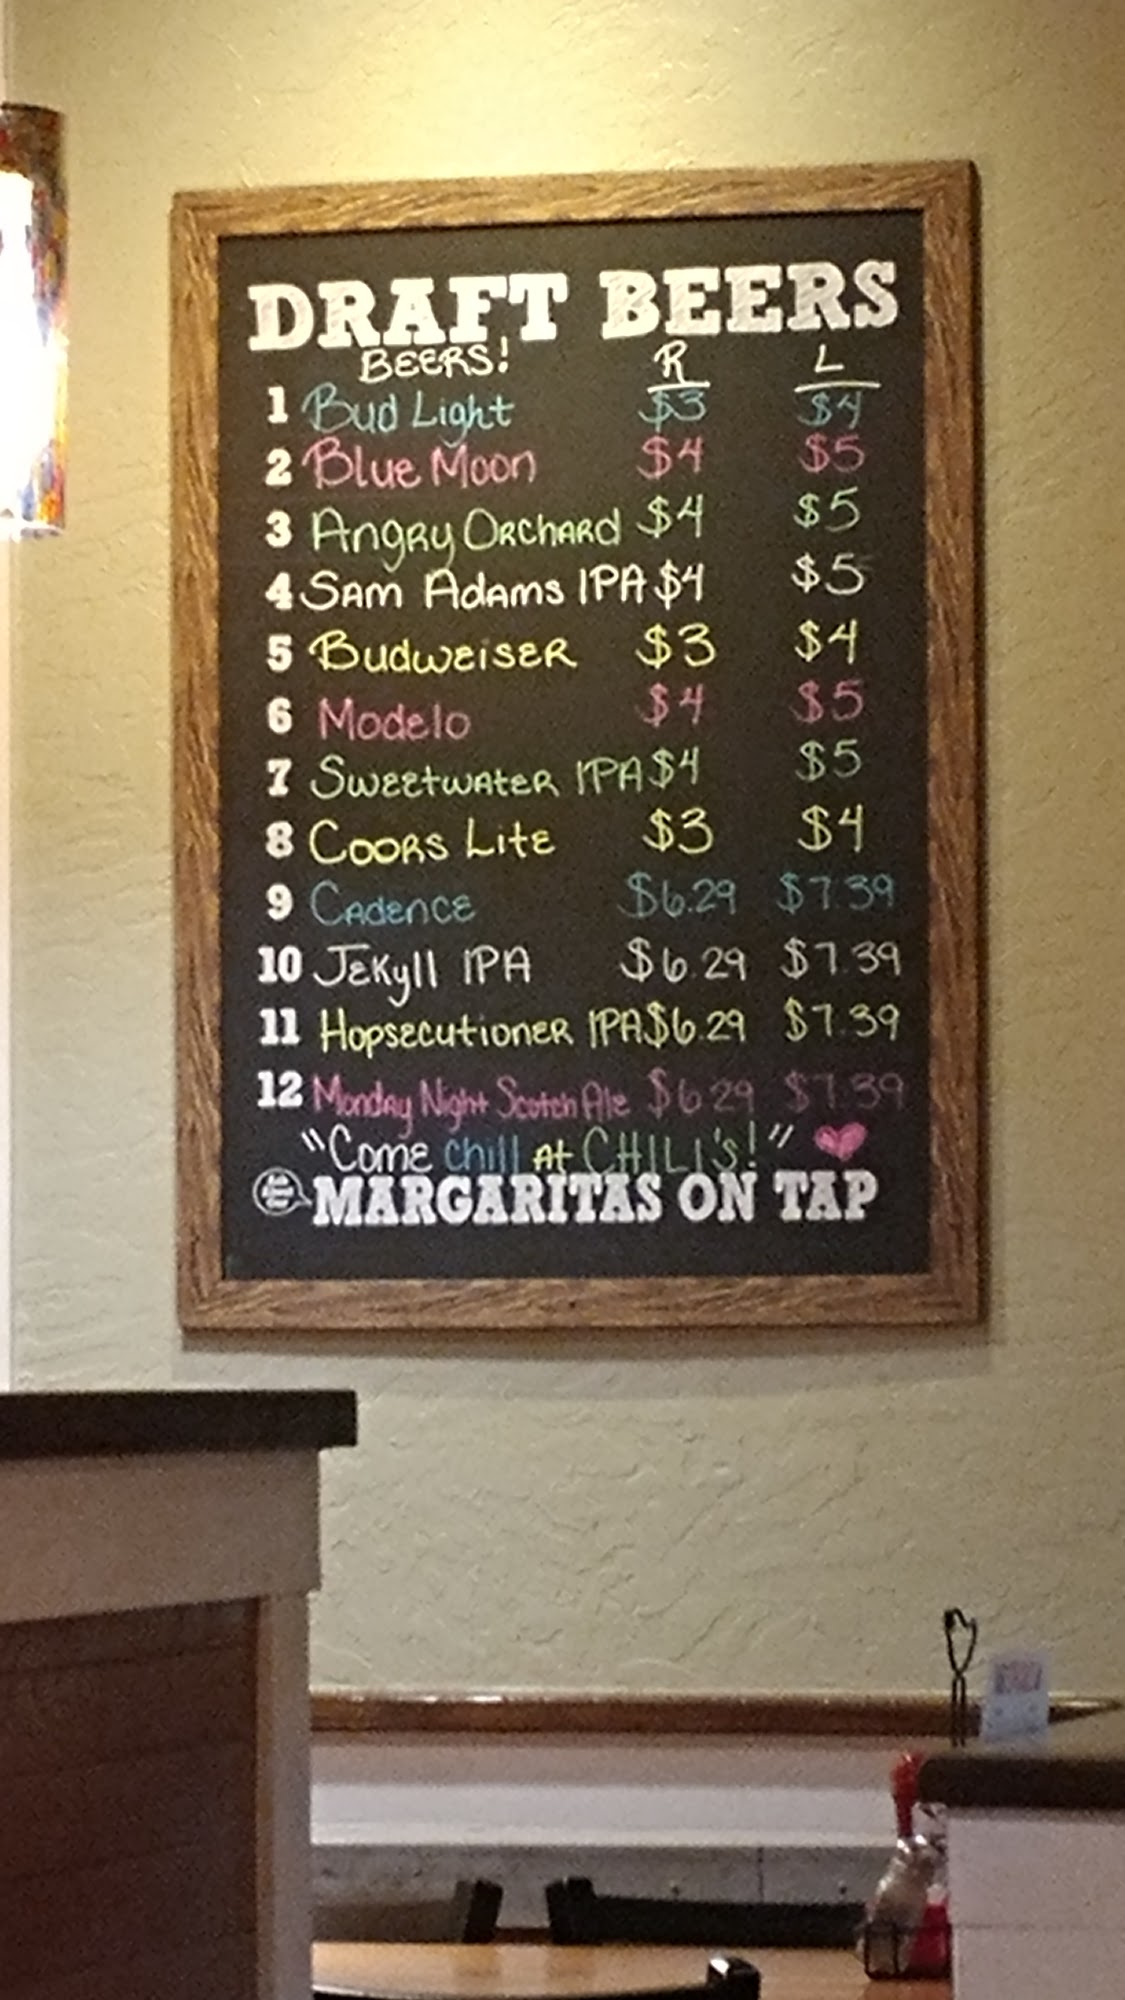 DRAFT BEERS
BEERS! R L
1 Bud Light $3 $4
2 Blue Moon $4 $5
3 Angry Orchard $4 $5
4 Sam Adams IPA $4 $5
5 Budweiser $3 $4
6 Modelo $4 $5
7 Sweetwater IPA $4 $5
8 Coors Lite $3 $4
9 Cadence $6.29 $7.39
10 Jekyll IPA $6.29 $7.39
11 Hopsecutioner IPA $6.29 $7.39
12 Monday Night Scotch Ale $6.29 $7.39
"Come chill at CHILI's!"
MARGARITAS ON TAP